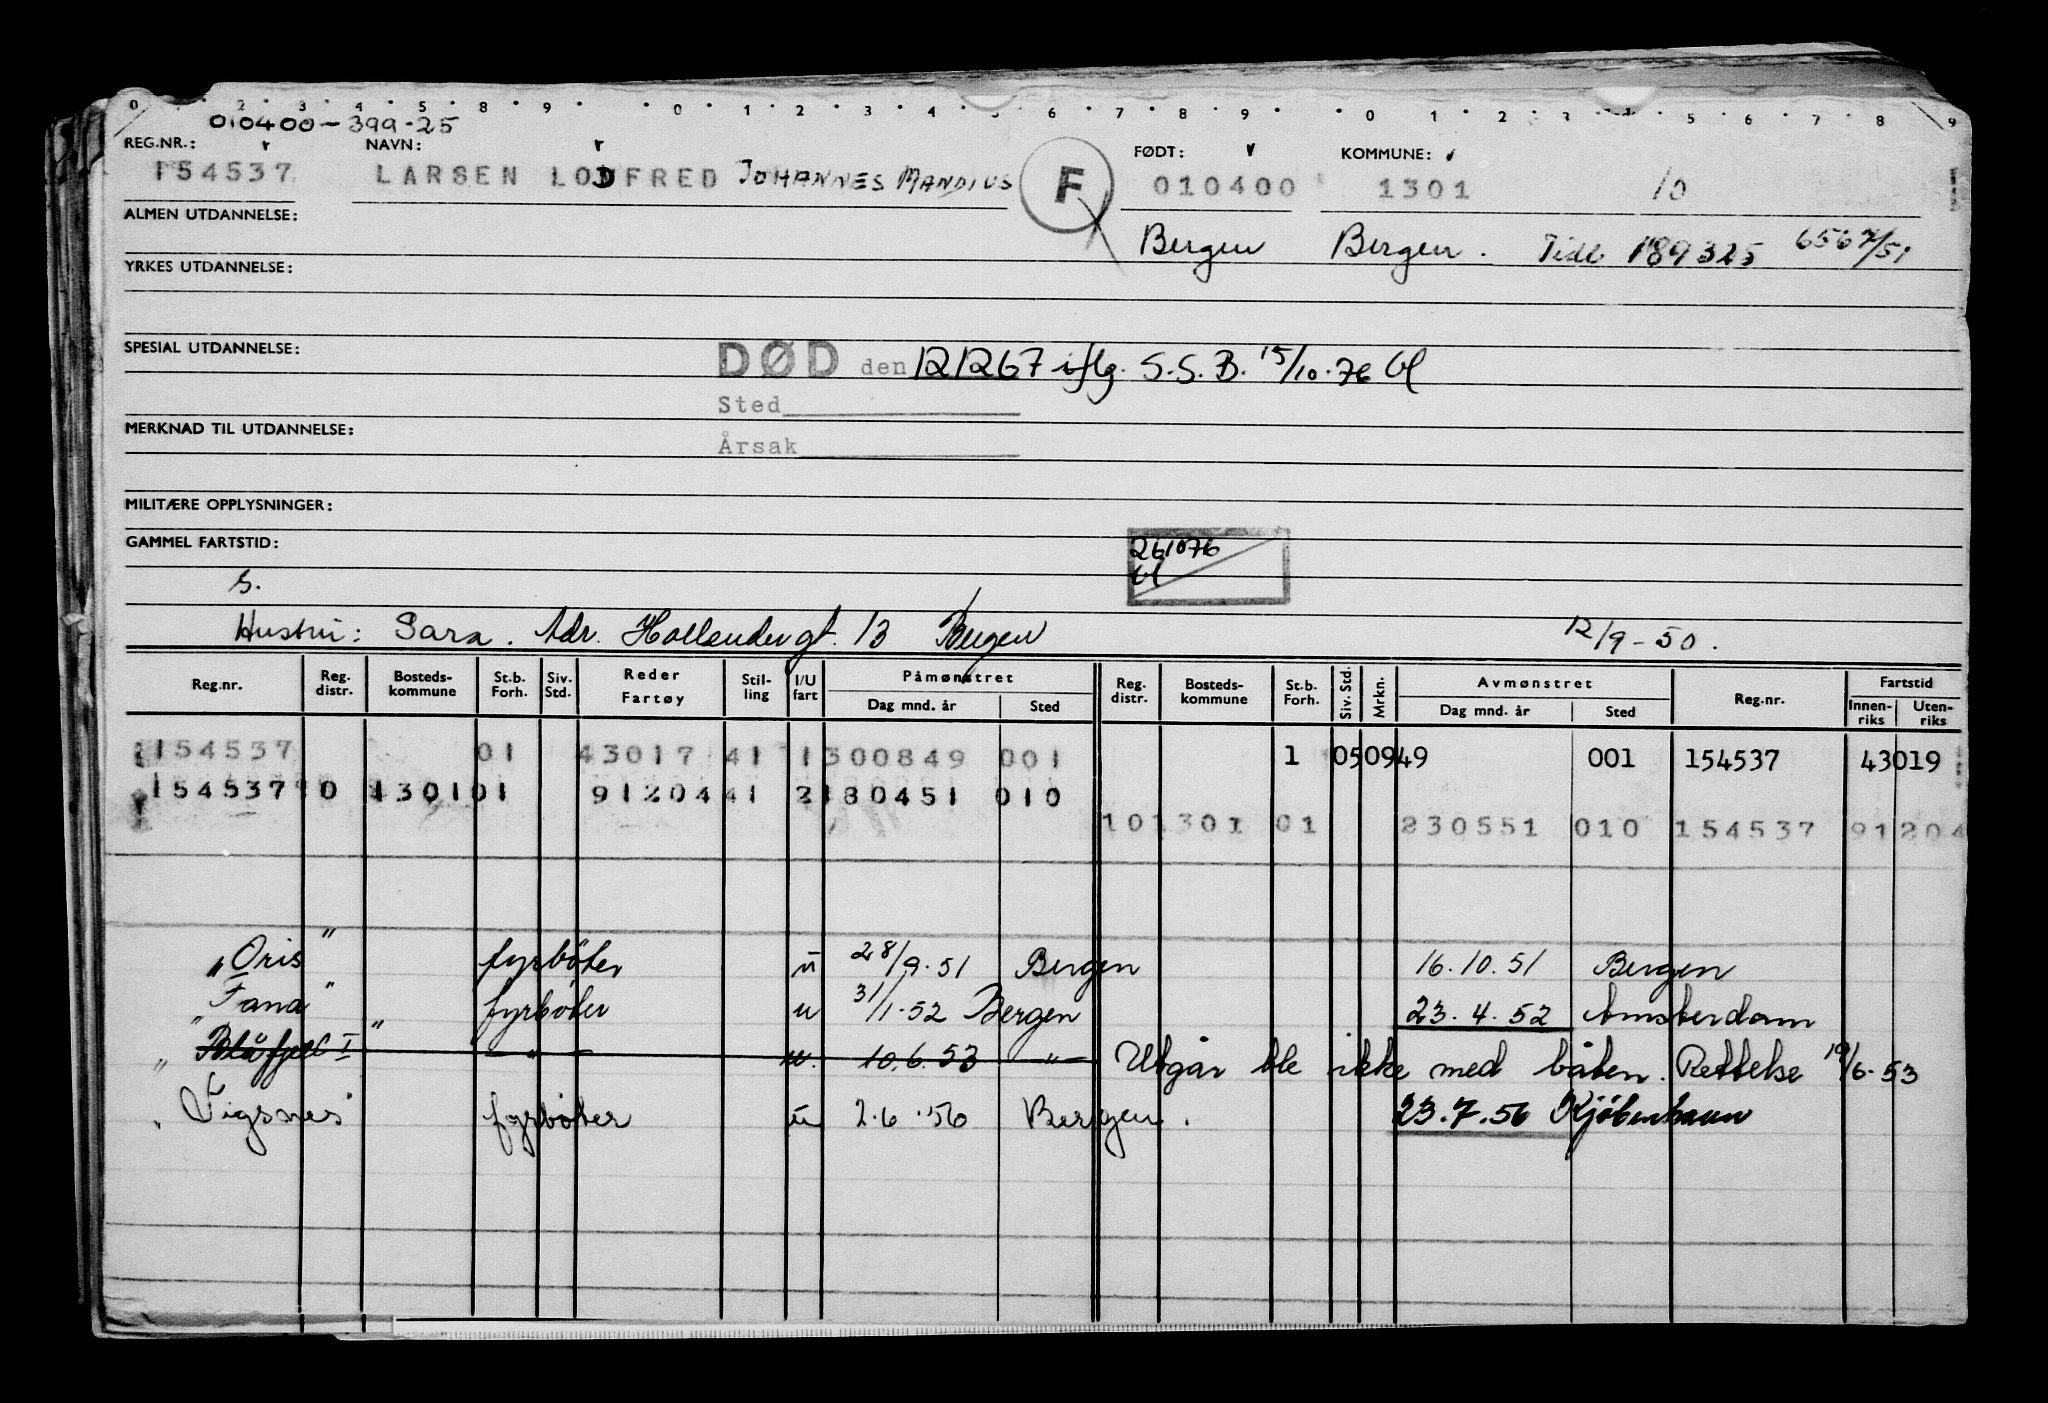 0 1 2 3 4 5 8 9 0 1 2 3 4 5 6 7 8 9 0 1 2 3 4 5 6 7 8 9
010400-399-25
REG.NR.: NAVN: FØDT: KOMMUNE:
154537 LARSEN LODFRED JOHANNES MANDIUS F 010400 1301 10
ALMEN UTDANNELSE:
Bergen Bergen. Tidl 189325 656 7/51
YRKES UTDANNELSE:
SPESIAL UTDANNELSE:
DØD den 121267 iflg. S.S.B. 15/10.76 bl
Sted
MERKNAD TIL UTDANNELSE:
Årsak
MILITÆRE OPPLYSNINGER:
GAMMEL FARTSTID:
261076
bl
S.
Hustru: Sara. Adr. Hollendergt. 13 Bergen 12/9-50.
Reg.nr. Reg. distr. Bosteds-kommune St.b. Forh. Siv. Std. Reder Fartøy Stil-ling I/U fart Påmønstret Dag mnd. år Sted Reg. distr. Bosteds-kommune St.b. Forh. Siv. Std. Mrkn. Avmønstret Dag mnd. år Sted Reg.nr. Fartstid Innen-riks Uten-riks
154537 01 43017 41 1 300849 001 1 050949 001 154537 43019
154537 10 130101 91204 41 2 180451 010
10 1301 01 230551 010 154537 91204
"Oris" fyrbøter u 28/9.51 Bergen 16.10.51 Bergen
"Fana" fyrbøter u 31/1.52 Bergen 23.4.52 Amsterdam
"Blåfjell I" -"- u. 10.6.53 -"- Utgår ble ikke med båten. Rettelse 19/6.53
"Vigsnes" fyrbøter u 2.6.56 Bergen. 23.7.56 Kjøbenhavn